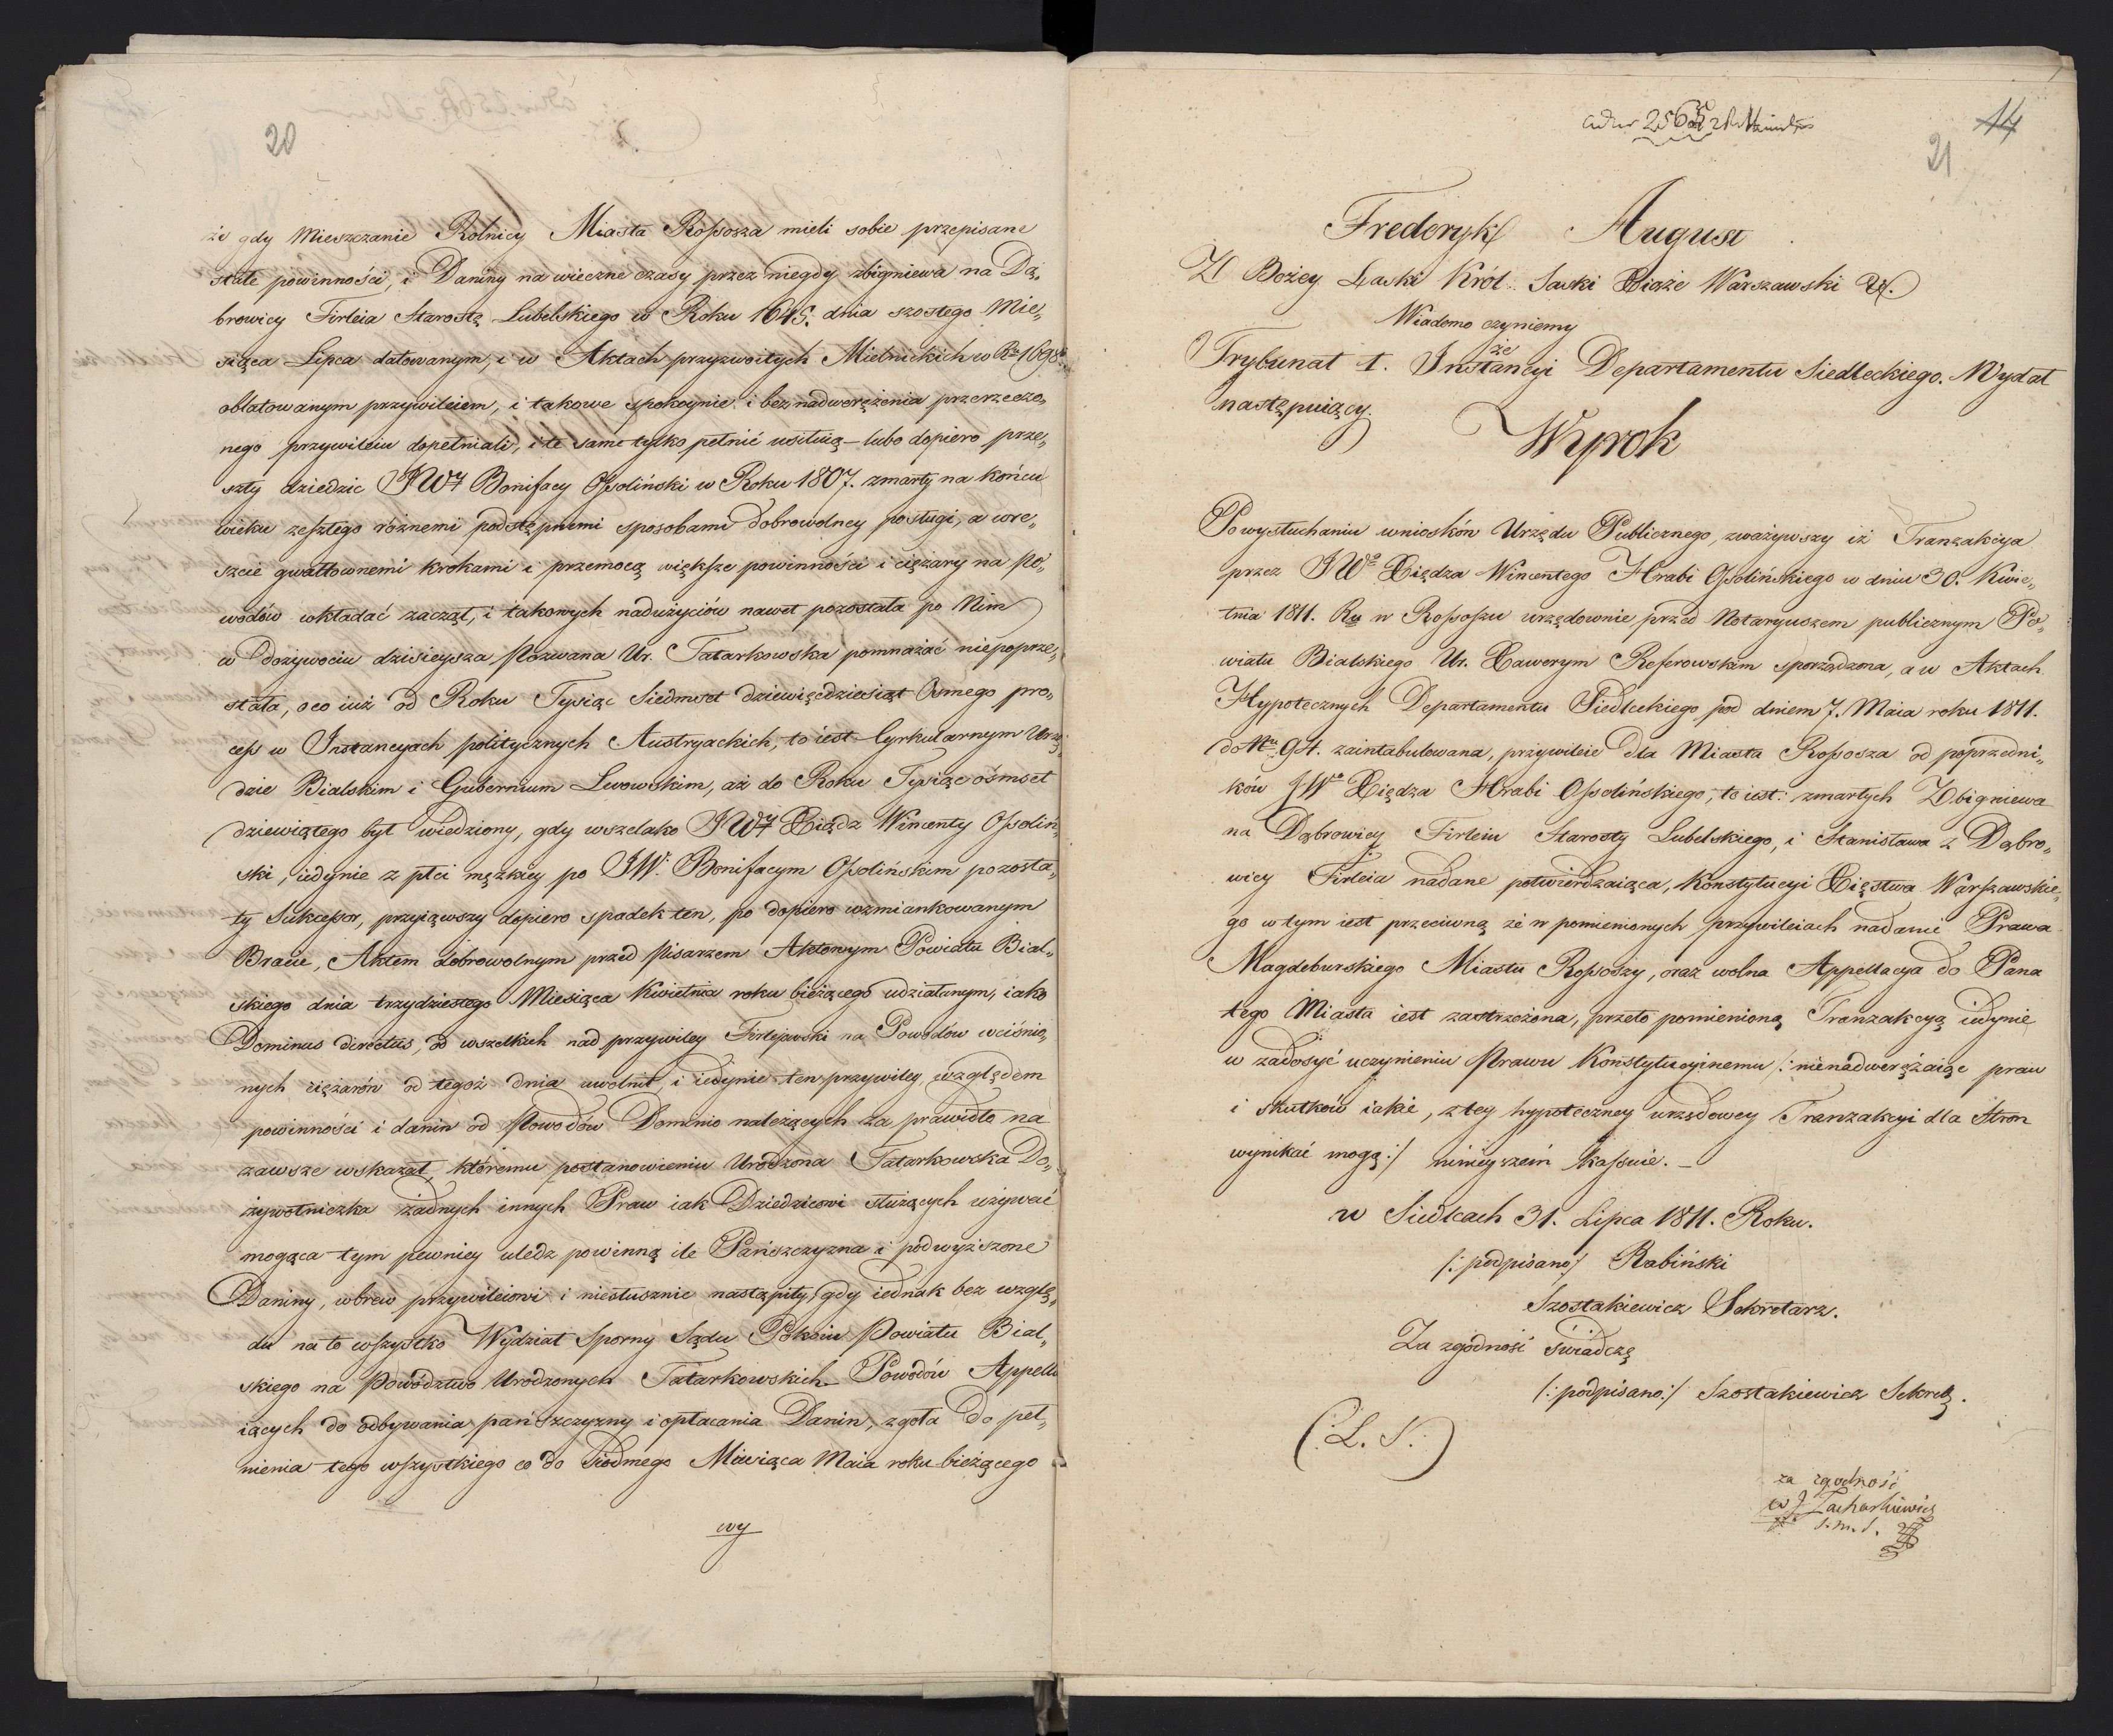 20
że gdy Mieszczanie Rolnicy Miasta Rossosza mieli sobie przepisane
stałe powinności, i Daniny na wieczne czasy przez niegdy zbigniewa na Dą„
browicy Firleia Starostę Lubelskiego w Roku 1645. dnia szostego Mie„
siąca Lipca datowanym, i w Aktach przyzwoitych Mielnickich w Rku 1698
oblatowanym przywileiem, i takowe spokoynie i bez nadwerężenia przerzeczo„
nego przywileiu dopełniali, i te same tylko pełnić usiłuią – lubo dopiero prze„
szły dziedzic JWy Bonifacy Ossoliński w Roku 1807. zmarły na końcu
wieku zeszłego rożnemi podstępnemi sposobami dobrowolney posługi, a wre„
szcie gwałtownemi krokami i przemocą większe powinności i ciężary na po„
wodów wkładać zaczął, i takowych nadużyciów nawet pozostała po Nim
w dożywociu dzisieysza Pozwana Ur. Tatarkowska pomnażać niepoprze„
stała, o co iuż od Roku Tysiąc Siedmset dziewięćdziesiąt Osmego pro„
cess w Instancyach politycznych Austryackich, to iest Cyrkularnym Urzę
dzie Bialskim i Gubernium Lwowskim, aż do Roku Tysiąc ośmset
dziewiątego był wiedziony, gdy wszelako JWy Xiądz Wincenty Ossoliń„
ski, iedynie z płci męzkiey po JW. Bonifacym Ossolińskim pozosta„
ły Sukcessor, przyiąwszy dopiero spadek ten, po dopiero wzmiankowanym
Bracie, Aktem dobrowolnym przed Pisarzem Aktowym Powiatu Bial„
skiego dnia trzydziestego Miesiąca Kwietnia roku bieżącego udziałanym, iako
Dominus directus, od wszelkich nad przywiley Firlejowski na Powodów wciśnio„
nych ciężarów od tegoż dnia uwolnił, i iedynie ten przywiley względem
powinności i danin od Powodów Dominio należących za prawidło na
zawsze wskazał, któremu postanowieniu Urodzona Tatarkowska Do„
żywotniczka żadnych innych Praw iak Dziedzicowi służących używać
mogąca tym pewniey uledz powinną ile Pańszczyzna i podwyższone
Daniny, wbrew przywileiowi i niesłusznie nastąpiły, gdy iednak bez wzglę„
du na to wszystko Wydział Sporny Sądu Pokoiu Powiatu Bial„
skiego na Powództwo Urodzonych Tatarkowskich Powodów Appellu
iących do odbywania pańszczyzny i opłacania Danin, zgoła do peł„
nienia tego wszystkiego co do Siodmego Miesiąca Maia roku bieżącego
wy
14
21
Fredcryk August
Z Bożey Łaski Król Saski Xiąże Warszawski
Wiadomo czyniemy
że
Trybunał I. Instancyi Departamentu Siedleckiego. Wydał
następuiący.
Wyrok
Po wysłuchaniu wniosków Urzędu Publicznego, zważywszy iż Tranzakcya
przez JWo Xiędza Wincentego Hrabi Ossolińskiego w dniu 30. Kwie„
tnia 1811. Ru w Rossoszu urzędownie przed Notaryuszem publicznym Po„
wiatu Bialskiego Ur. Xawerym Referowskim sporządzona, a w Aktach
Hypotecznych Departamentu Siedleckiego pod dniem 7. Maia roku 1811.
do Nru 91. zaintabulowana, przywileie dla Miasta Rossosza od poprzedni„
ków JWo Xiędza Hrabi Ossolińskiego, to iest: zmarłych Zbigniewa
na Dąbrowicy Firleiu Starosty Lubelskiego, i Stanisława z Dąbro„
wicy Firleia nadane potwierdzaiąca, Konstytucyi Xięstwa Warszawskie„
go w tym iest przeciwną że w pomienionych przywileiach nadanie Prawa
Magdeburskiego Miastu Rossoszy, oraz wolna Appellacya do Pana
tego Miasta iest zastrzeżona, przeto pomienioną Tranzakcyą iedynie
w zadosyć uczynieniu Prawu Konstytucyinemu /: nienadwerężaiąc praw
i skutków iakie, z tey hypoteczney urzędowey Tranzakcyi dla Stron
wynikać mogą:/ ninieyszem kassuie. –
w Siedlcach 31. Lipca 1811. Roku.
/: podpisano:/ Rabiński
Szostakiewicz Sekretarz.
Za zgodność świadczę
/: podpisano:/ Szostakiewicz Sekret.
(:L. S.:)
za zgodność